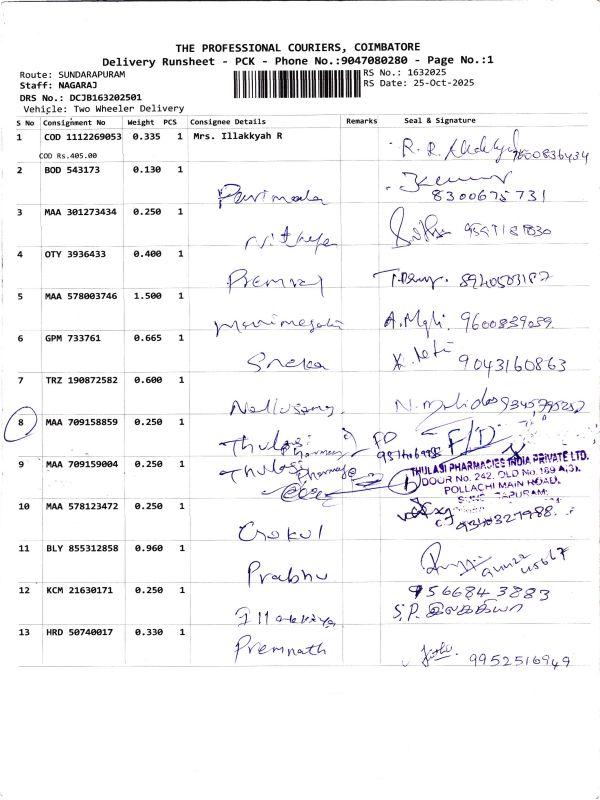 THE PROFESSIONAL COURIERS, COIMBATORE
Delivery Runsheet - PCK - Phone No.:9047080280 - Page No.:1
Route: SUNDARAPURAM
RS No.: 1632025
Staff: NAGARAJ
RS Date: 25-Oct-2025
DRS No.: DCJB163202501
Vehicle: Two Wheeler Delivery
S No Consignment No Weight PCS Consignee Details Remarks Seal & Signature
1 COD 1112269053 0.335 1 Mrs. Illakkyah R
COD Rs.405.00
7600836434
2 BOD 543173 0.130 1
Parimala 8300675731
3 MAA 301273434 0.250 1
4 OTY 3936433 0.400 1
Premraj
5 MAA 578003746 1.500 1
Manimegalai 9600839059
6 GPM 733761 0.665 1
Sneka 9043160863
7 TRZ 190872582 0.600 1
8 MAA 709158859 0.250 1
Thulasi Pharmacy FD F/D
9 MAA 709159004 0.250 1
Thulasi Pharmacy
THULASI PHARMACIES INDIA PRIVATE LTD.
DOOR No. 242, OLD No. 169 A(3),
POLLACHI MAIN ROAD,
10 MAA 578123472 0.250 1
Gokul
11 BLY 855312858 0.960 1
Prabhu
12 KCM 21630171 0.250 1 9566843883
S.P. இலக்கியா
13 HRD 50740017 0.330 1
Premnath 9952516949